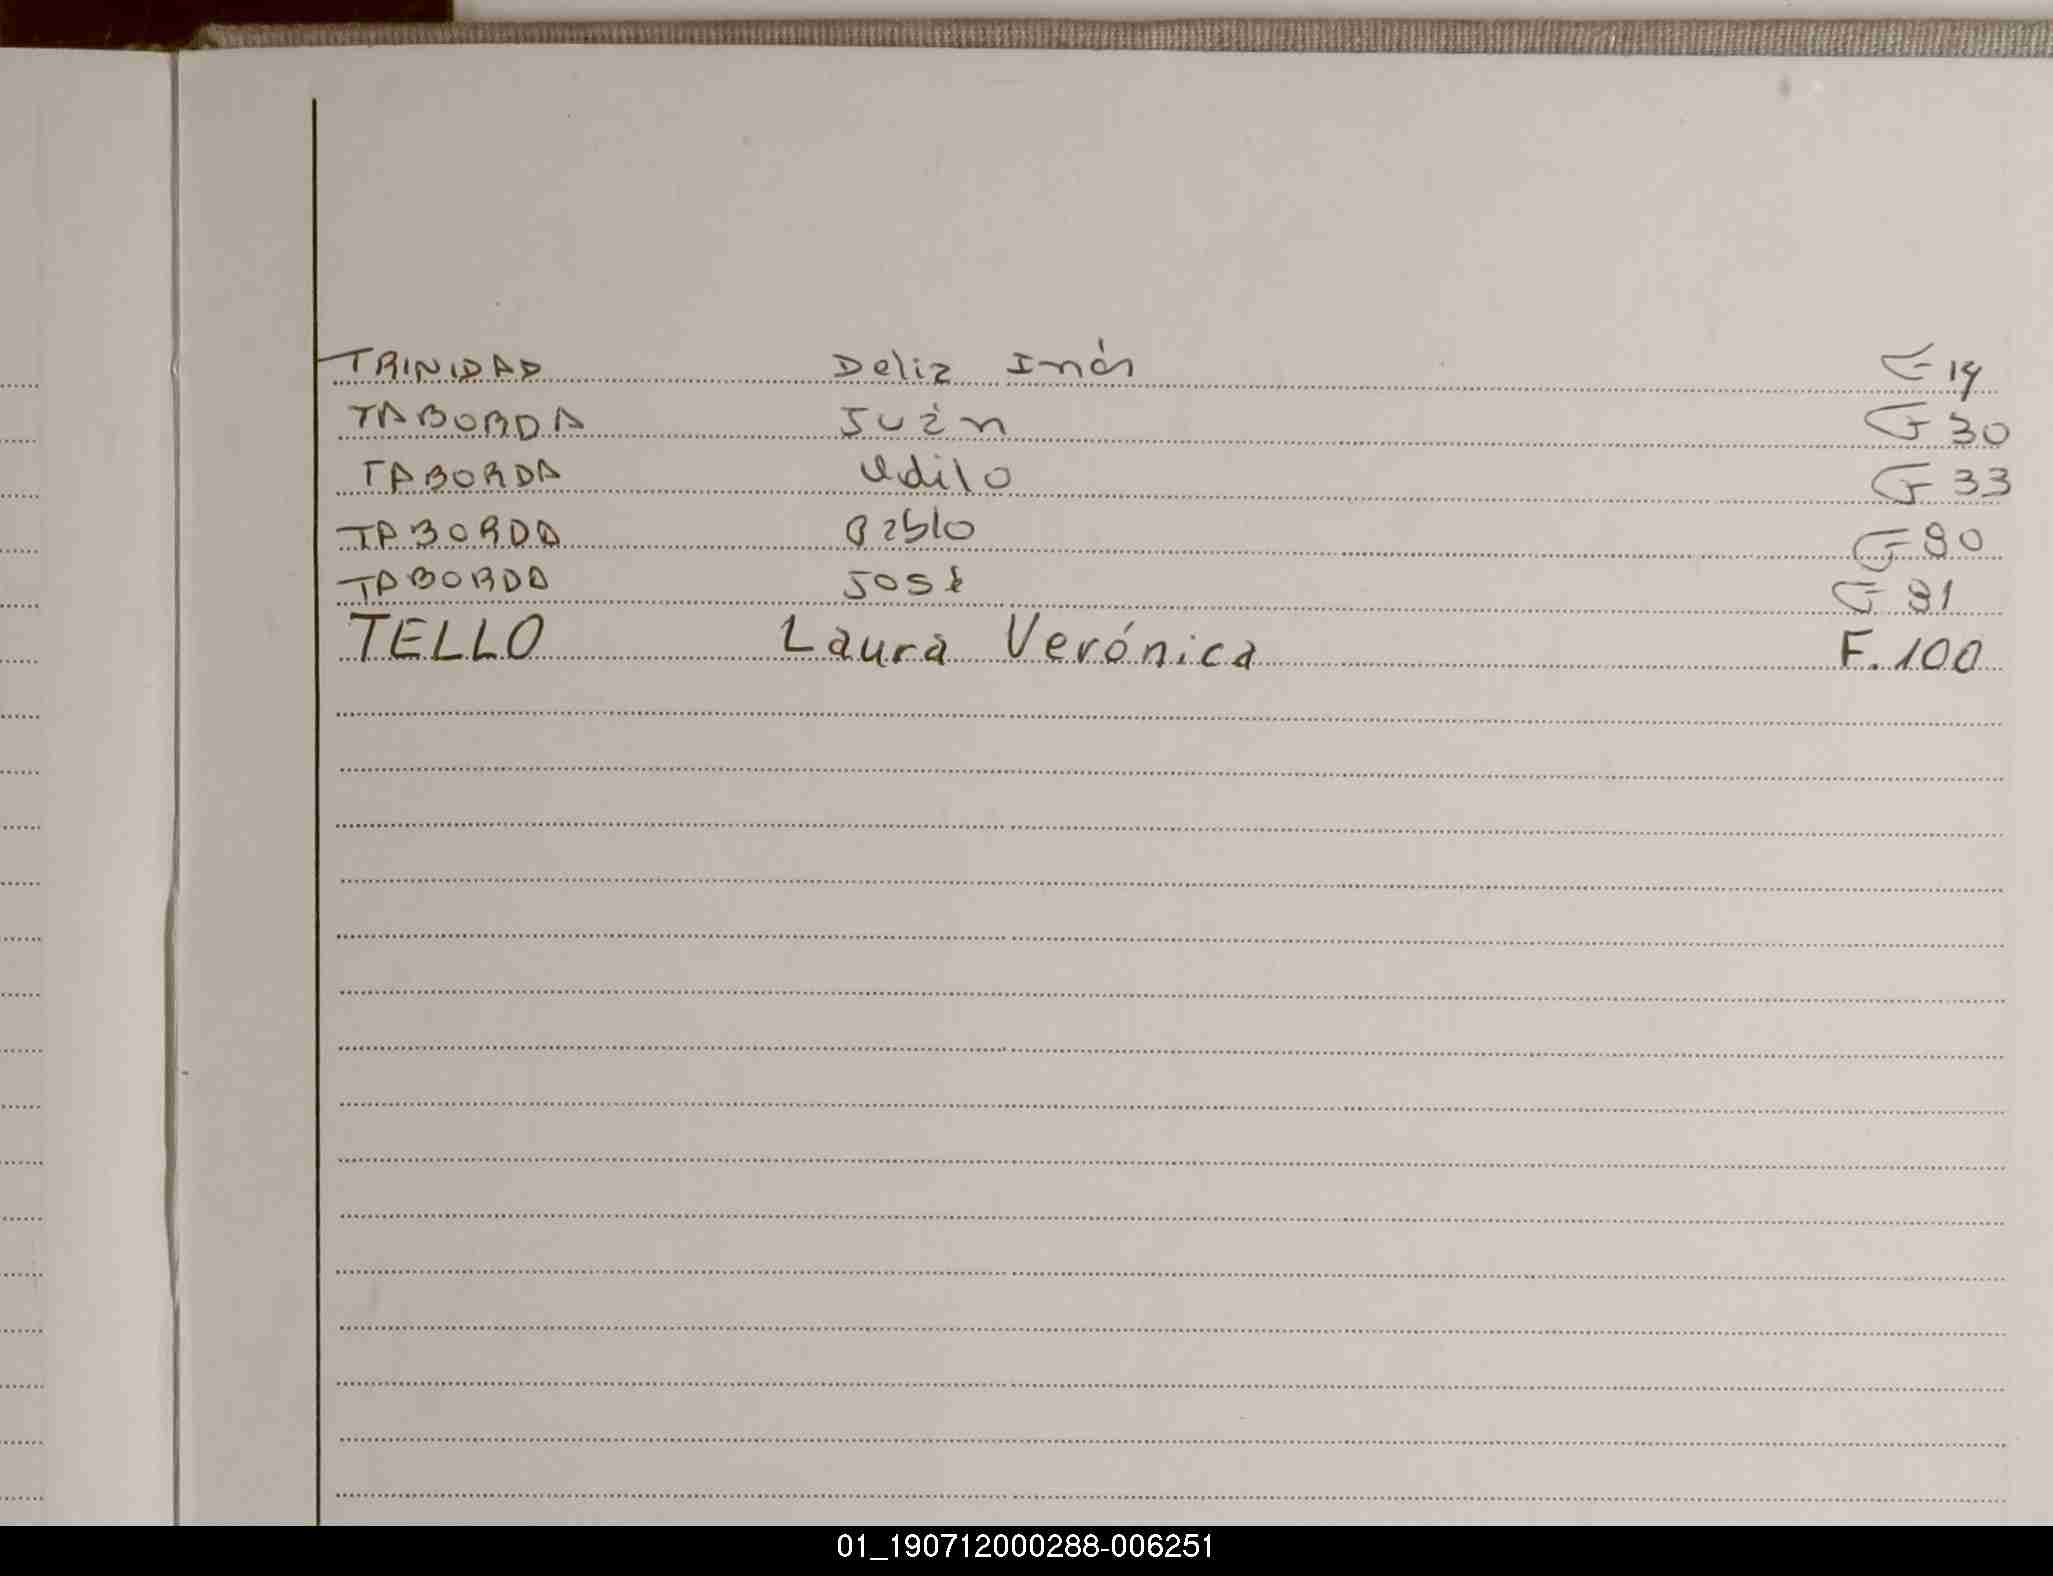 TRINIDAD Delia Inés F 14
TABORDA Juan F 30
TABORDA Udilo F 33
TABORDA Pablo F 90
TABORDA José F 91
TELLO Laura Verónica F. 100
01_190712000288-006251